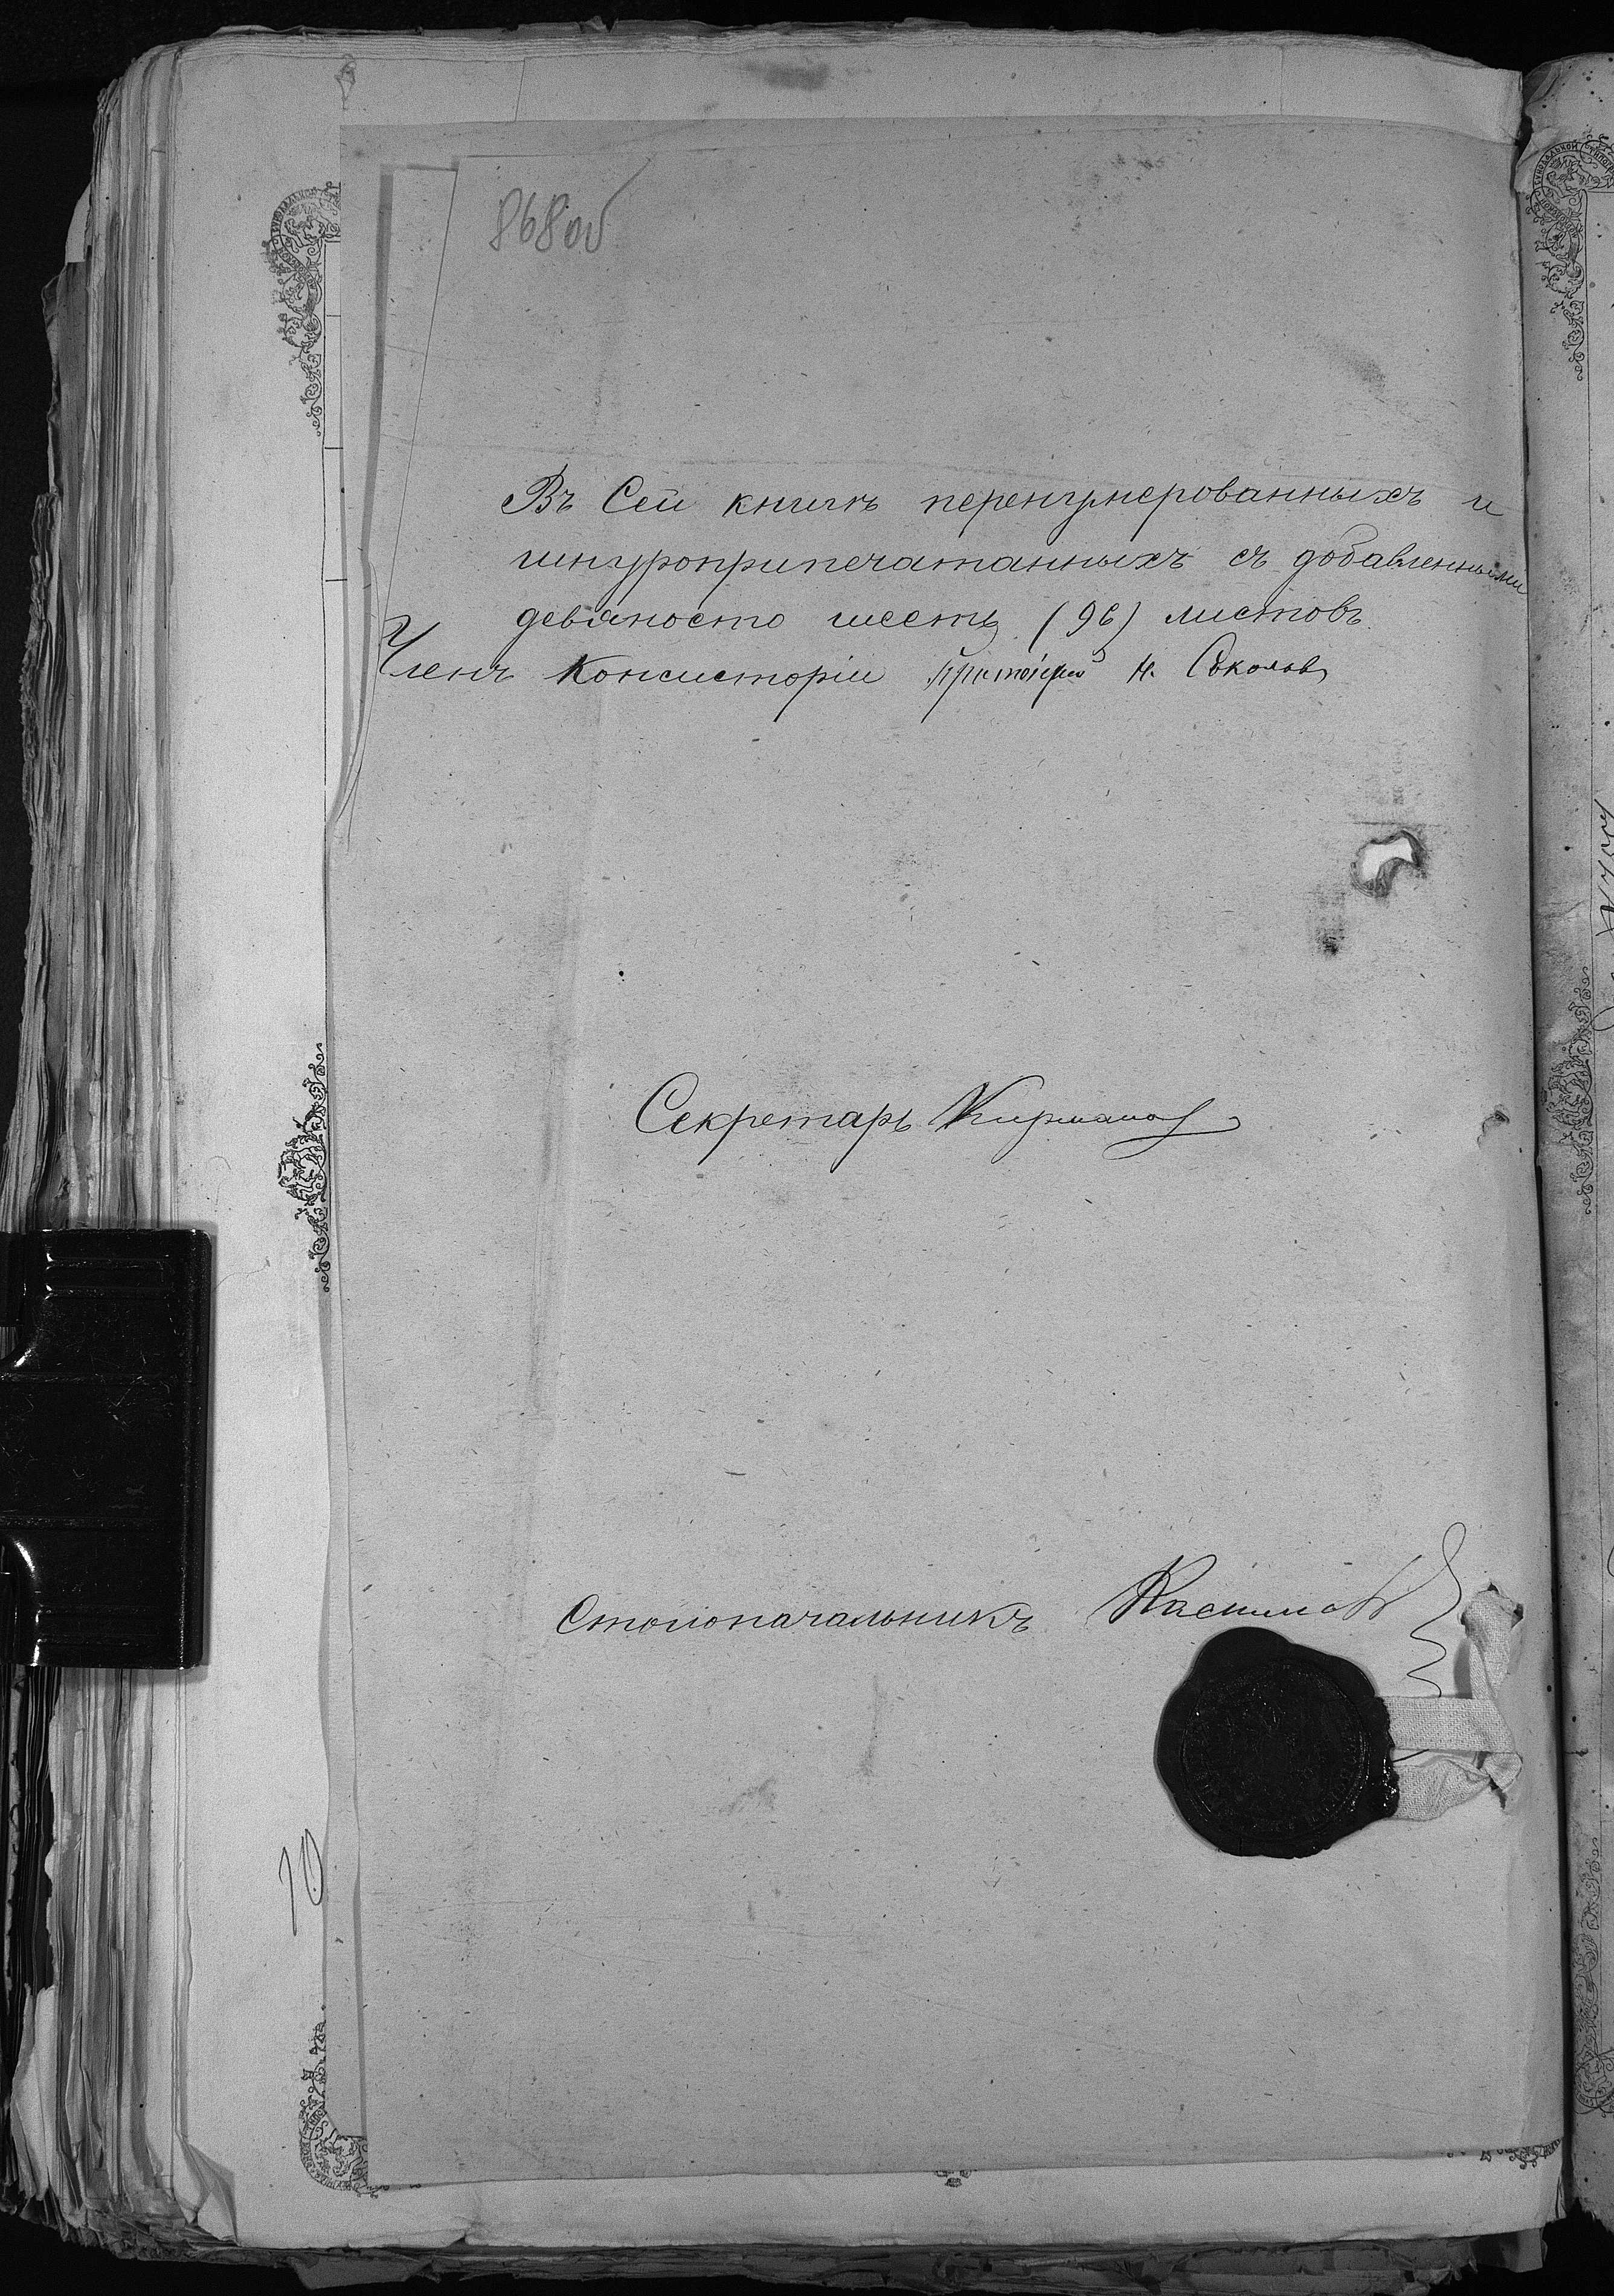 868 об
Въ Сей книгѣ перенумерованныхъ и
шнуроприпечатанныхъ съ добавленными
девяносто шесть (96) листовъ
Членъ Консисторіи Протоіерей Н. Соколовъ
Секретарь
Столоначальникъ
10